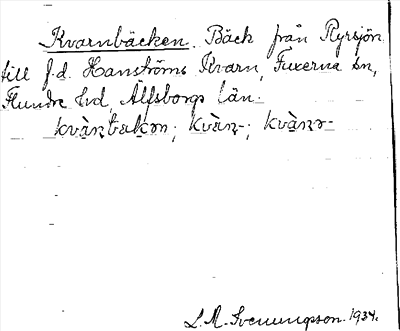 Kvarnbäcken. Bäck från Ryrsjön
till f.d. Hanströms Kvarn, Fuxerna sn,
Flundre hd, Älfsborgs län.
kvàṇbækən; kvàṇ-; kvàṇə-
L. M. Svenungsson. 1934.